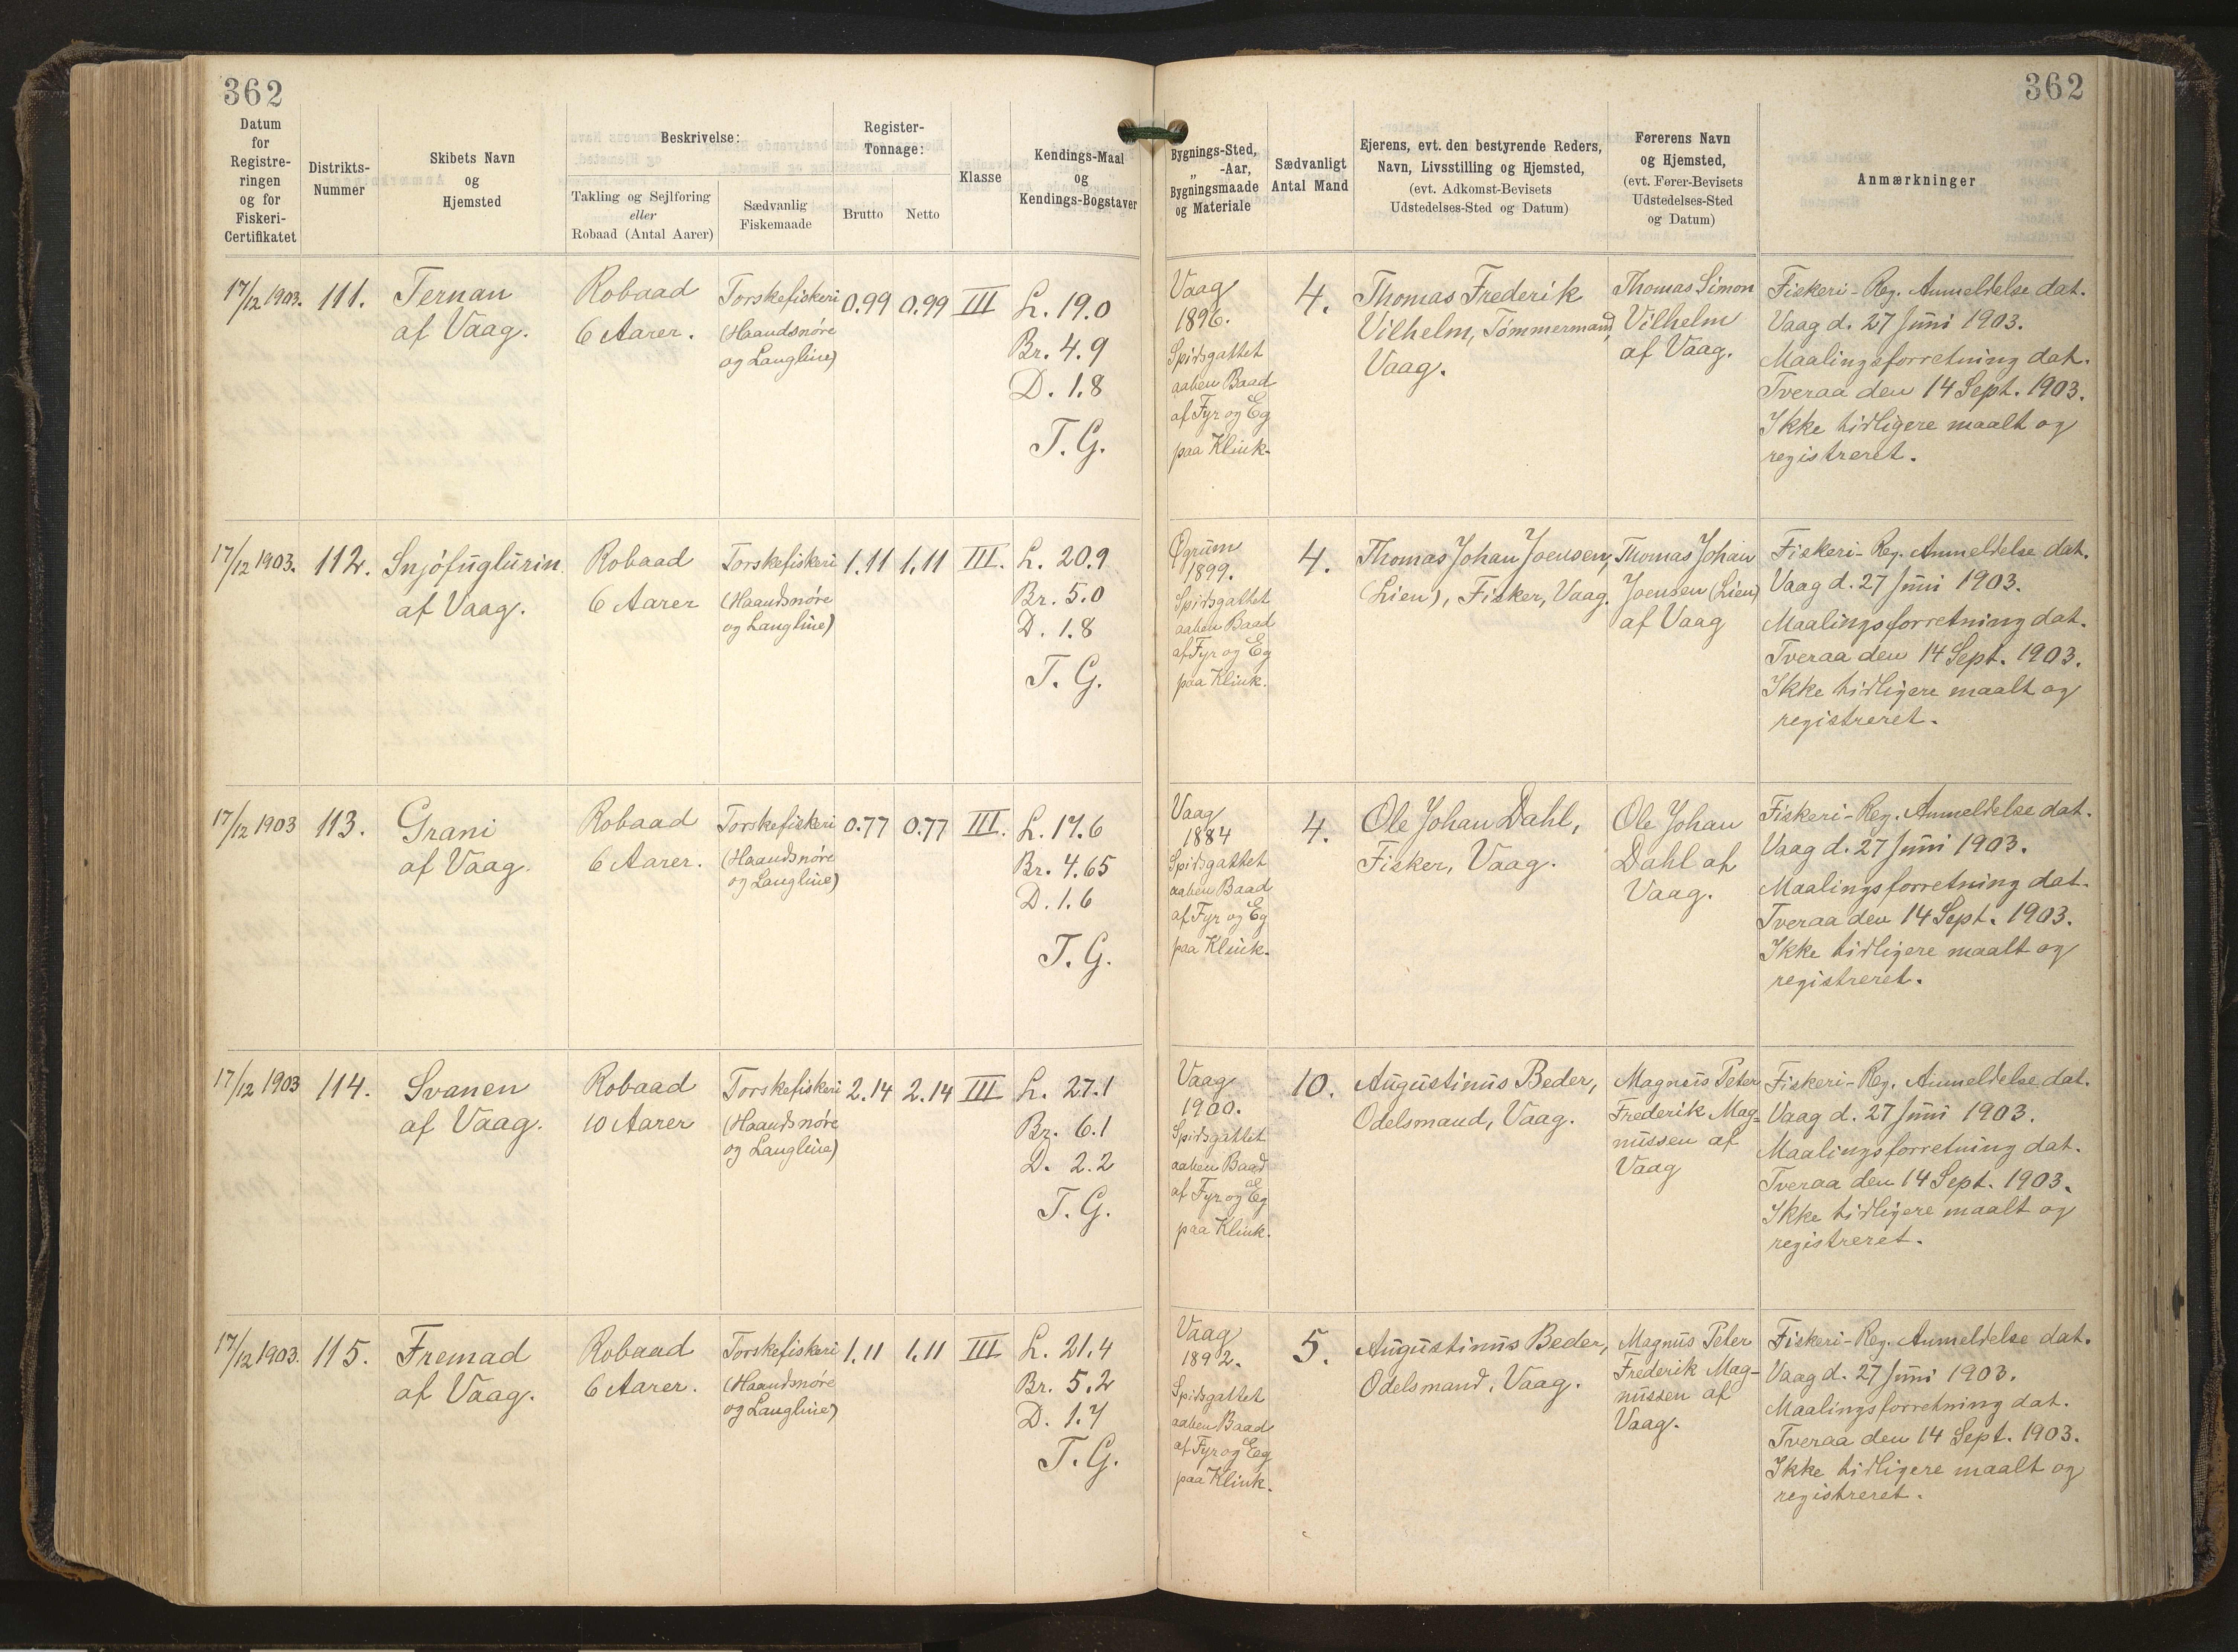 362
362
Datum
for
Registre-
ringen
og for
Fiskeri-
Certifikatet
Distrikts-
Nummer
Skibets Navn
og
Hjemsted
Beskrivelse:
Takling og Sejlføring
eller
Robaad (Antal Aarer)
Sædvanlig
Fiskemaade
Register-
Tonnage:
Brutto
Netto
Klasse
Kendings-Maal
og
Kendings-Bogstaver
Bygnings-Sted,
„ -Aar,
Bygningsmaade
og Materiale
Sædvanligt
Antal Mand
Ejerens, evt. den bestyrende Reders,
Navn, Livsstilling og Hjemsted,
(evt. Adkomst-Bevisets
Udstedelses-Sted og Datum)
Førerens Navn
og Hjemsted,
(evt. Fører-Bevisets
Udstedelses-Sted
og Datum)
Anmærkninger
17/12 1903.
111.
Ternan
af Vaag.
Robaad
6 Aarer.
Torskefiskeri
(Haandsnøre
og Langline)
0.99
0.99
III
L. 19.0
Br. 4.9
D. 1.8
T. G.
Vaag
1896.
Spidsgattet
aaben Baad
af Fyr og Eg
paa Klink.
4.
Thomas Frederik
Vilhelm, Tömmermand,
Vaag.
Thomas Simon
Vilhelm
af Vaag.
Fiskeri-Reg. Anmeldelse dat.
Vaag d. 27 Juni 1903.
Maalingsforretning dat.
Tveraa den 14 Sept. 1903.
Ikke tidligere maalt og
registreret.
17/12 1903.
112.
Snjófuglurin
af Vaag.
Robaad
6 Aarer
Torskefiskeri
(Haandsnøre
og Langline)
1.11
1.11
III.
L. 20.9
Br. 5.0
D. 1.8
T. G.
Øgrum
1899.
Spidsgattet
aaben Baad
af Fyr og Eg
paa Klink.
4.
Thomas Johan Joensen,
(Lien), Fisker, Vaag.
Thomas Johan
Joensen (Lien)
af Vaag
Fiskeri-Reg. Anmeldelse dat.
Vaag d. 27 Juni 1903.
Maalingsforretning dat.
Tveraa den 14 Sept. 1903.
Ikke tidligere maalt og
registreret.
17/12 1903
113.
Grani
af Vaag.
Robaad
6 Aarer.
Torskefiskeri
(Haandsnøre
og Langline)
0.77
0.77
III.
L. 17.6
Br. 4.65
D. 1.6
T. G.
Vaag
1884
Spidsgattet
aaben Baad
af Fyr og Eg
paa Klink.
4.
Ole Johan Dahl,
Fisker, Vaag.
Ole Johan
Dahl af
Vaag.
Fiskeri-Reg. Anmeldelse dat.
Vaag d. 27 Juni 1903.
Maalingsforretning dat.
Tveraa den 14 Sept. 1903.
Ikke tidligere maalt og
registreret.
17/12 1903
114.
Svanen
af Vaag.
Robaad
10 Aarer
Torskefiskeri
(Haandsnøre
og Langline)
2.14
2.14
III
L. 27.1
Br. 6.1
D. 2.2
T. G.
Vaag
1900.
Spidsgattet
aaben Baad
af Fyr og Eg
paa Klink.
10.
Augustinus Beder,
Odelsmand, Vaag.
Magnus Peter
Frederik Mag=
nussen af
Vaag
Fiskeri-Reg. Anmeldelse dat.
Vaag d. 27 Juni 1903.
Maalingsforretning dat.
Tveraa den 14 Sept. 1903.
Ikke tidligere maalt og
registreret.
17/12 1903.
115.
Fremad
af Vaag.
Robaad
6 Aarer.
Torskefiskeri
(Haandsnøre
og Langline)
1.11
1.11
III
L. 21.4
Br. 5.2
D. 1.7
T. G.
Vaag
1892.
Spidsgattet
aaben Baad
af Fyr og Eg
paa Klink.
5.
Augustinus Beder,
Odelsmand, Vaag.
Magnus Peter
Frederik Mag-
nussen af
Vaag.
Fiskeri-Reg. Anmeldelse dat.
Vaag d. 27 Juni 1903.
Maalingsforretning dat.
Tveraa den 14 Sept. 1903.
Ikke tidligere maalt og
registreret.